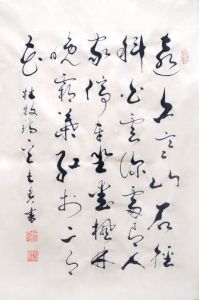 遠上寒山石徑
斜白雲深處有人
家停車坐愛楓林
晚霜葉紅於二月
花 杜牧詩 書